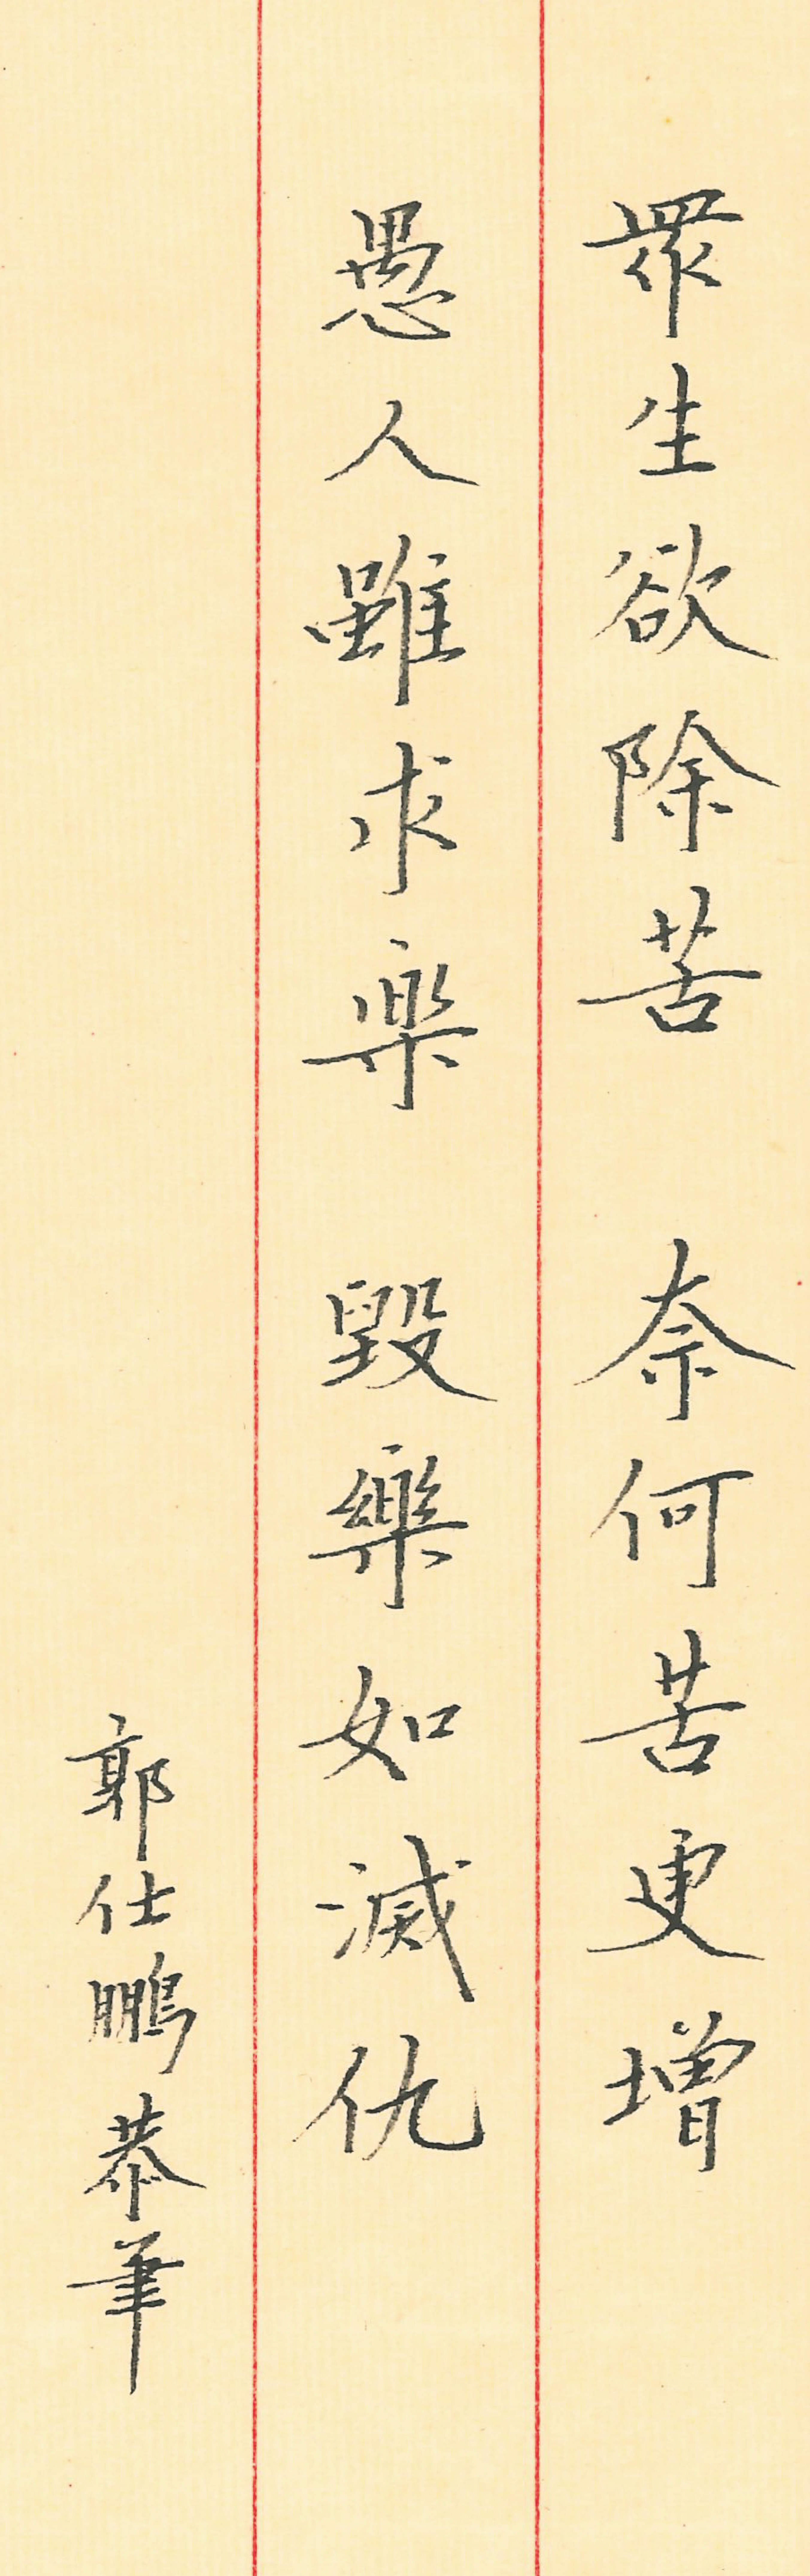 眾生欲除苦 奈何苦更增
愚人雖求樂 毀樂如滅仇
郭仕鵬恭筆